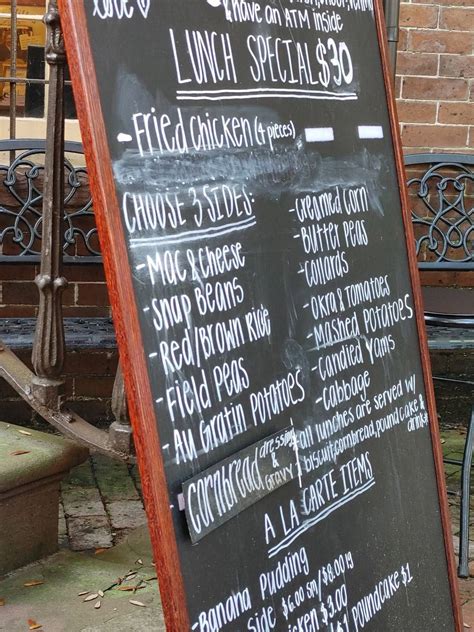 love
& have an ATM inside
LUNCH SPECIAL $30
- Fried Chicken (4 pieces)
CHOOSE 3 SIDES:
- Mac & Cheese
- Snap Beans
- Red/Brown Rice
- Field Peas
- Au Gratin Potatoes
- Cornbread dressing & gravy
- Creamed Corn
- Butter Peas
- Collards
- Okra & Tomatoes
- Mashed Potatoes
- Candied Yams
- Cabbage
all lunches are served w/
biscuit, cornbread, pound cake &
drink
A LA CARTE ITEMS
- Banana Pudding
side $6.00 sm/$8.00 lg
chicken $3.00
poundcake $1